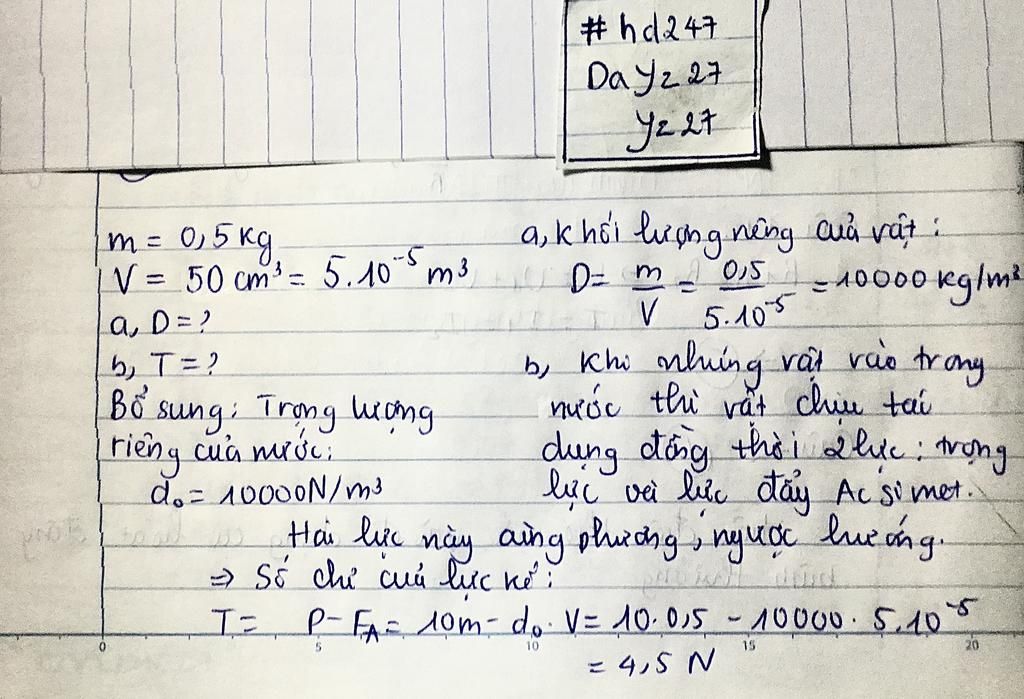 #hd247
Dayz27
yz27
m = 0,5 kg
V = 50 cm³ = 5.10⁻⁵ m³
a, D = ?
b, T = ?
Bổ sung: Trọng lượng
riêng của nước:
d₀ = 10000N/m³
a, khối lượng riêng của vật:
D = m/V = 0,5/5.10⁻⁵ = 10000 kg/m³
b, Khi nhúng vật vào trong
nước thì vật chịu tác
dụng đồng thời 2 lực: trọng
lực và lực đẩy Acsimet.
Hai lực này cùng phương, ngược hướng.
⇒ Số chỉ của lực kế:
T = P - F_A = 10m - d₀.V = 10.0,5 - 10000.5.10⁻⁵
= 4,5 N
0 5 10 15 20